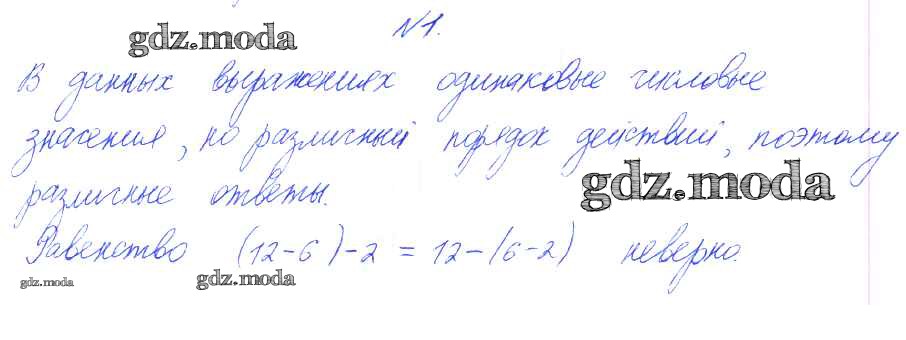 №1.
gdz.moda
В данных выражениях одинаковые числовые
значения, но различный порядок действий, поэтому
различные ответы.
gdz.moda
Равенство (12-6)-2 = 12-(6-2) неверно.
gdz.moda
gdz.moda